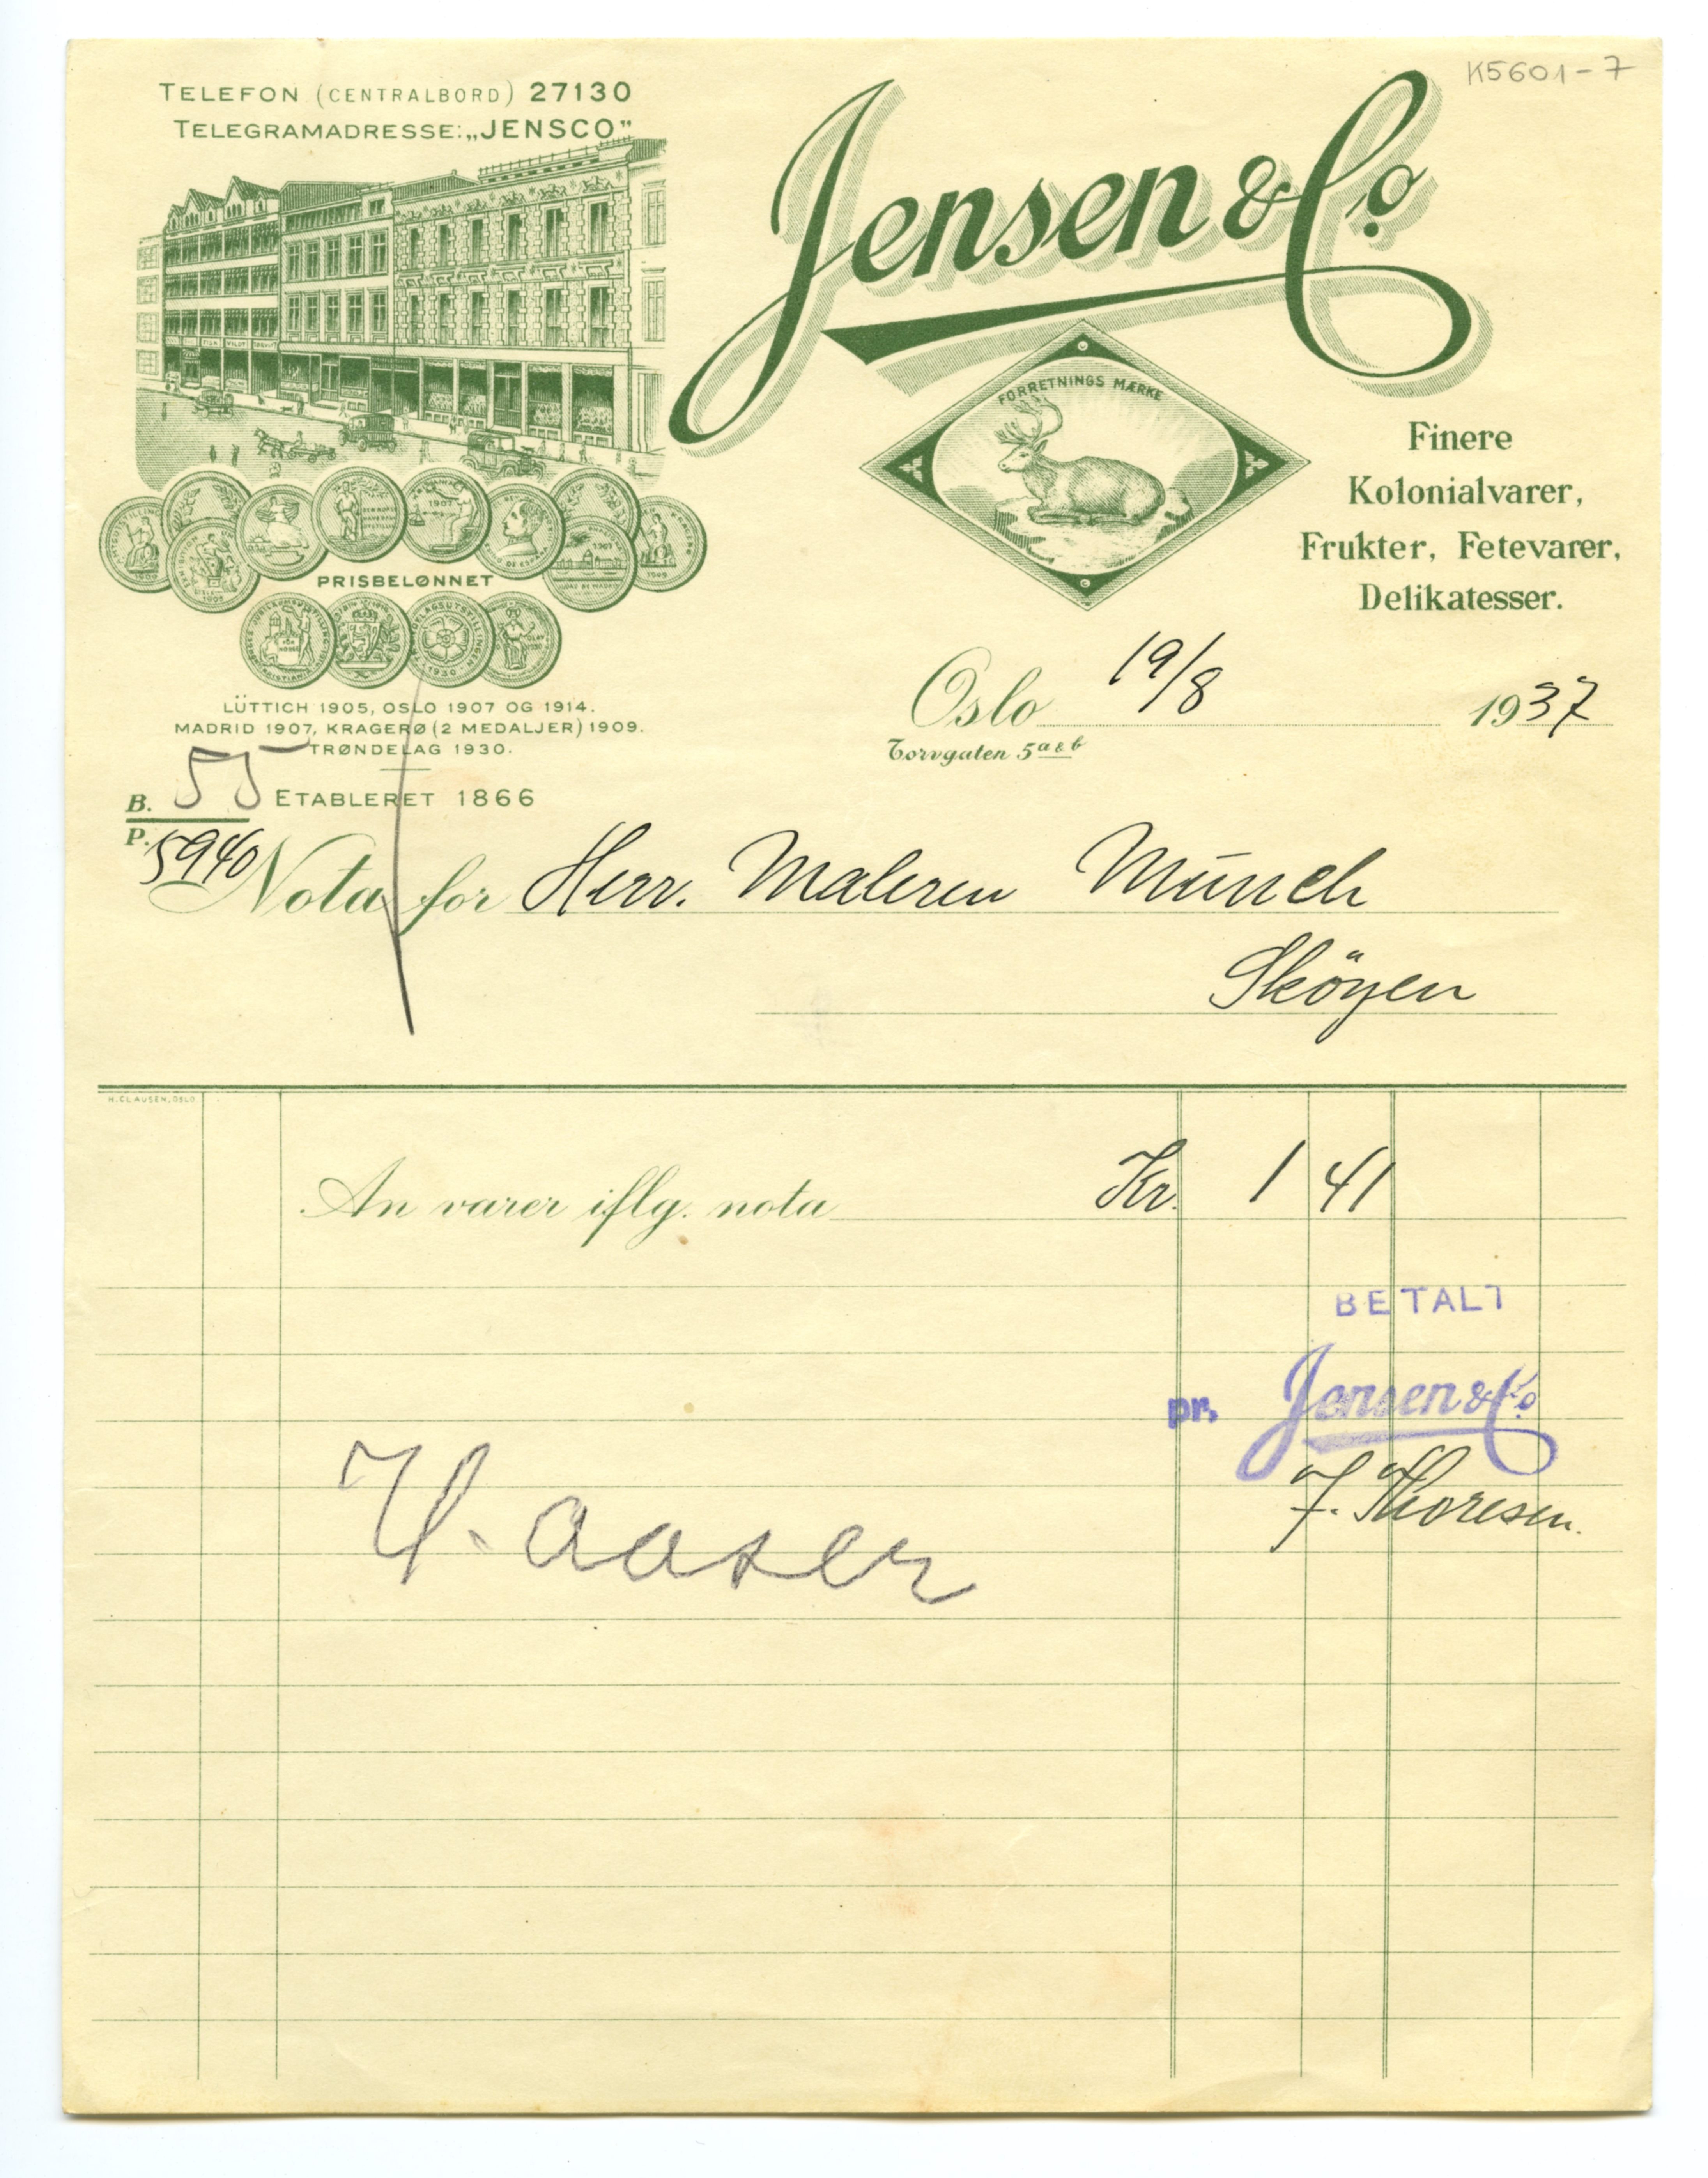 K5601-7
TELEFON (CENTRALBORD) 27130
TELEGRAMADRESSE: „JENSCO”
Jensen & Co.
FORRETNINGS MÆRKE
Finere
Kolonialvarer,
Frukter, Fetevarer,
Delikatesser.
PRISBELØNNET
LÜTTICH 1905, OSLO 1907 OG 1914.
MADRID 1907, KRAGERØ (2 MEDALJER) 1909.
TRØNDELAG 1930.
Oslo 19/8 1937
Torvgaten 5 a & b
B. 55
ETABLERET 1866
P. 5940
Nota for Herr. Maleren Münch
Sköyen
H. CLAUSEN, OSLO
An varer iflg. nota Kr. 1 41
BETALT
pr. Jensen & Co.
F. Thoresen.